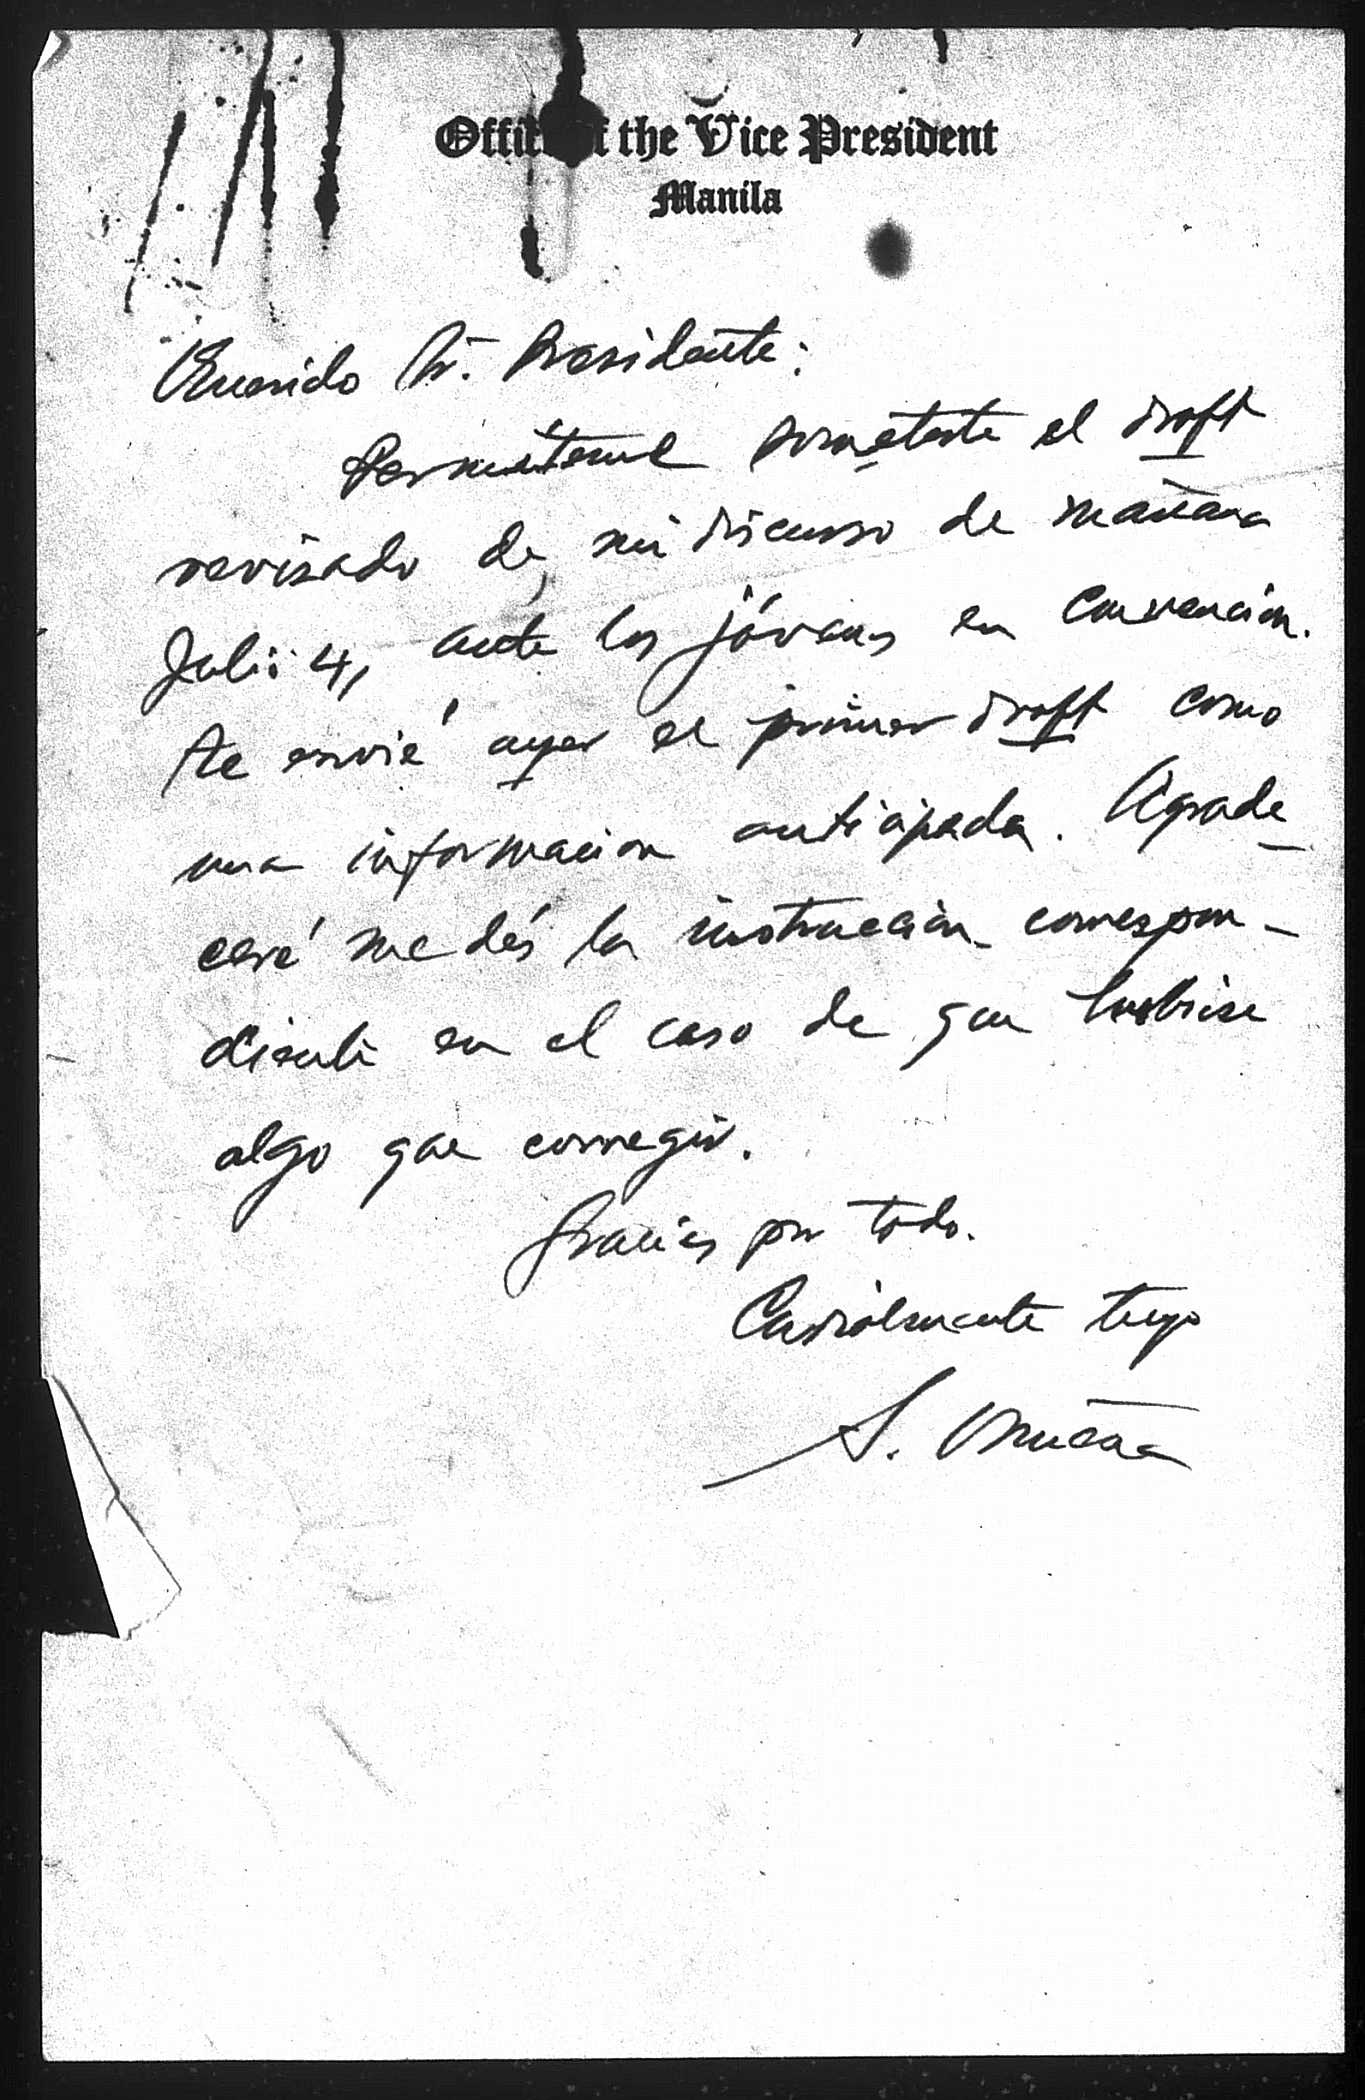 Office of the Vice President
Manila
Querido Sr. Presidente:
Permíteme someterte el draft
revisado de mi discurso de mañana
Julio 4, ante los jóvenes en convención.
Te envié ayer el primer draft como
una informacion anticipada. Agrade-
ceré me dés la instrucción correspon-
diente en el caso de que hubiese
algo que corregir.
Gracias por todo.
Cordialmente tuyo
S. Osmeña